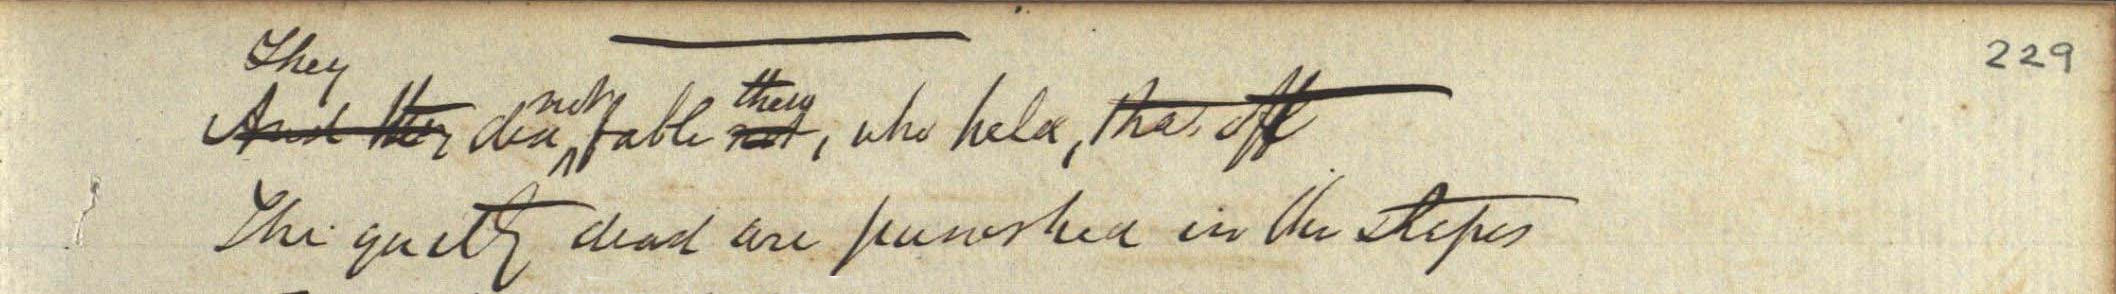 229
They
And they did not fable not they, who held, that oft
The guilty dead are punished in the shapes